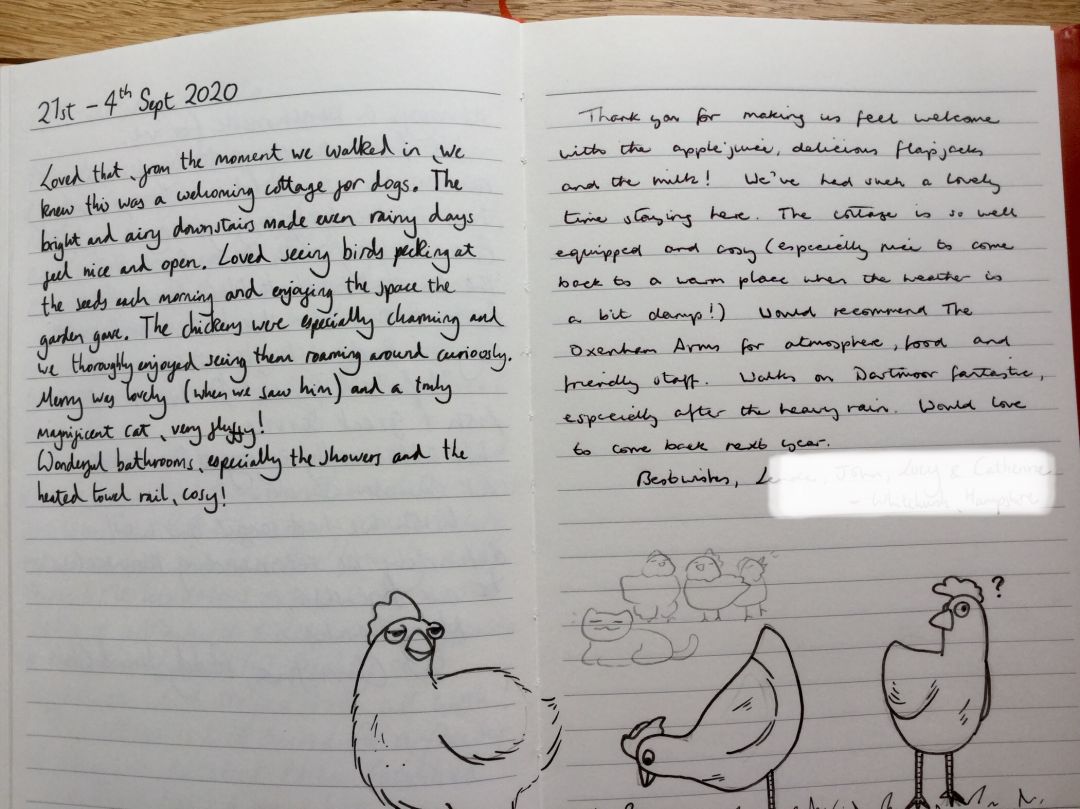 21st – 4th Sept 2020
Loved that, from the moment we walked in, we
knew this was a welcoming cottage for dogs. The
bright and airy downstairs made even rainy days
feel nice and open. Loved seeing birds pecking at
the seeds each morning and enjoying the space the
garden gave. The chickens were especially charming and
we thoroughly enjoyed seeing them roaming around curiously.
Merry was lovely (when we saw him) and a truly
magnificent cat, very fluffy!
Wonderful bathrooms, especially the showers and the
heated towel rail, cosy!
Thank you for making us feel welcome
with the apple juice, delicious flapjacks
and the milk! We've had such a lovely
time staying here. The cottage is so well
equipped and cosy (especially nice to come
back to a warm place when the weather is
a bit damp!) Would recommend The
Oxenham Arms for atmosphere, food and
friendly staff. Walks on Dartmoor fantastic,
especially after the heavy rain. Would love
to come back next year.
Best wishes,
?